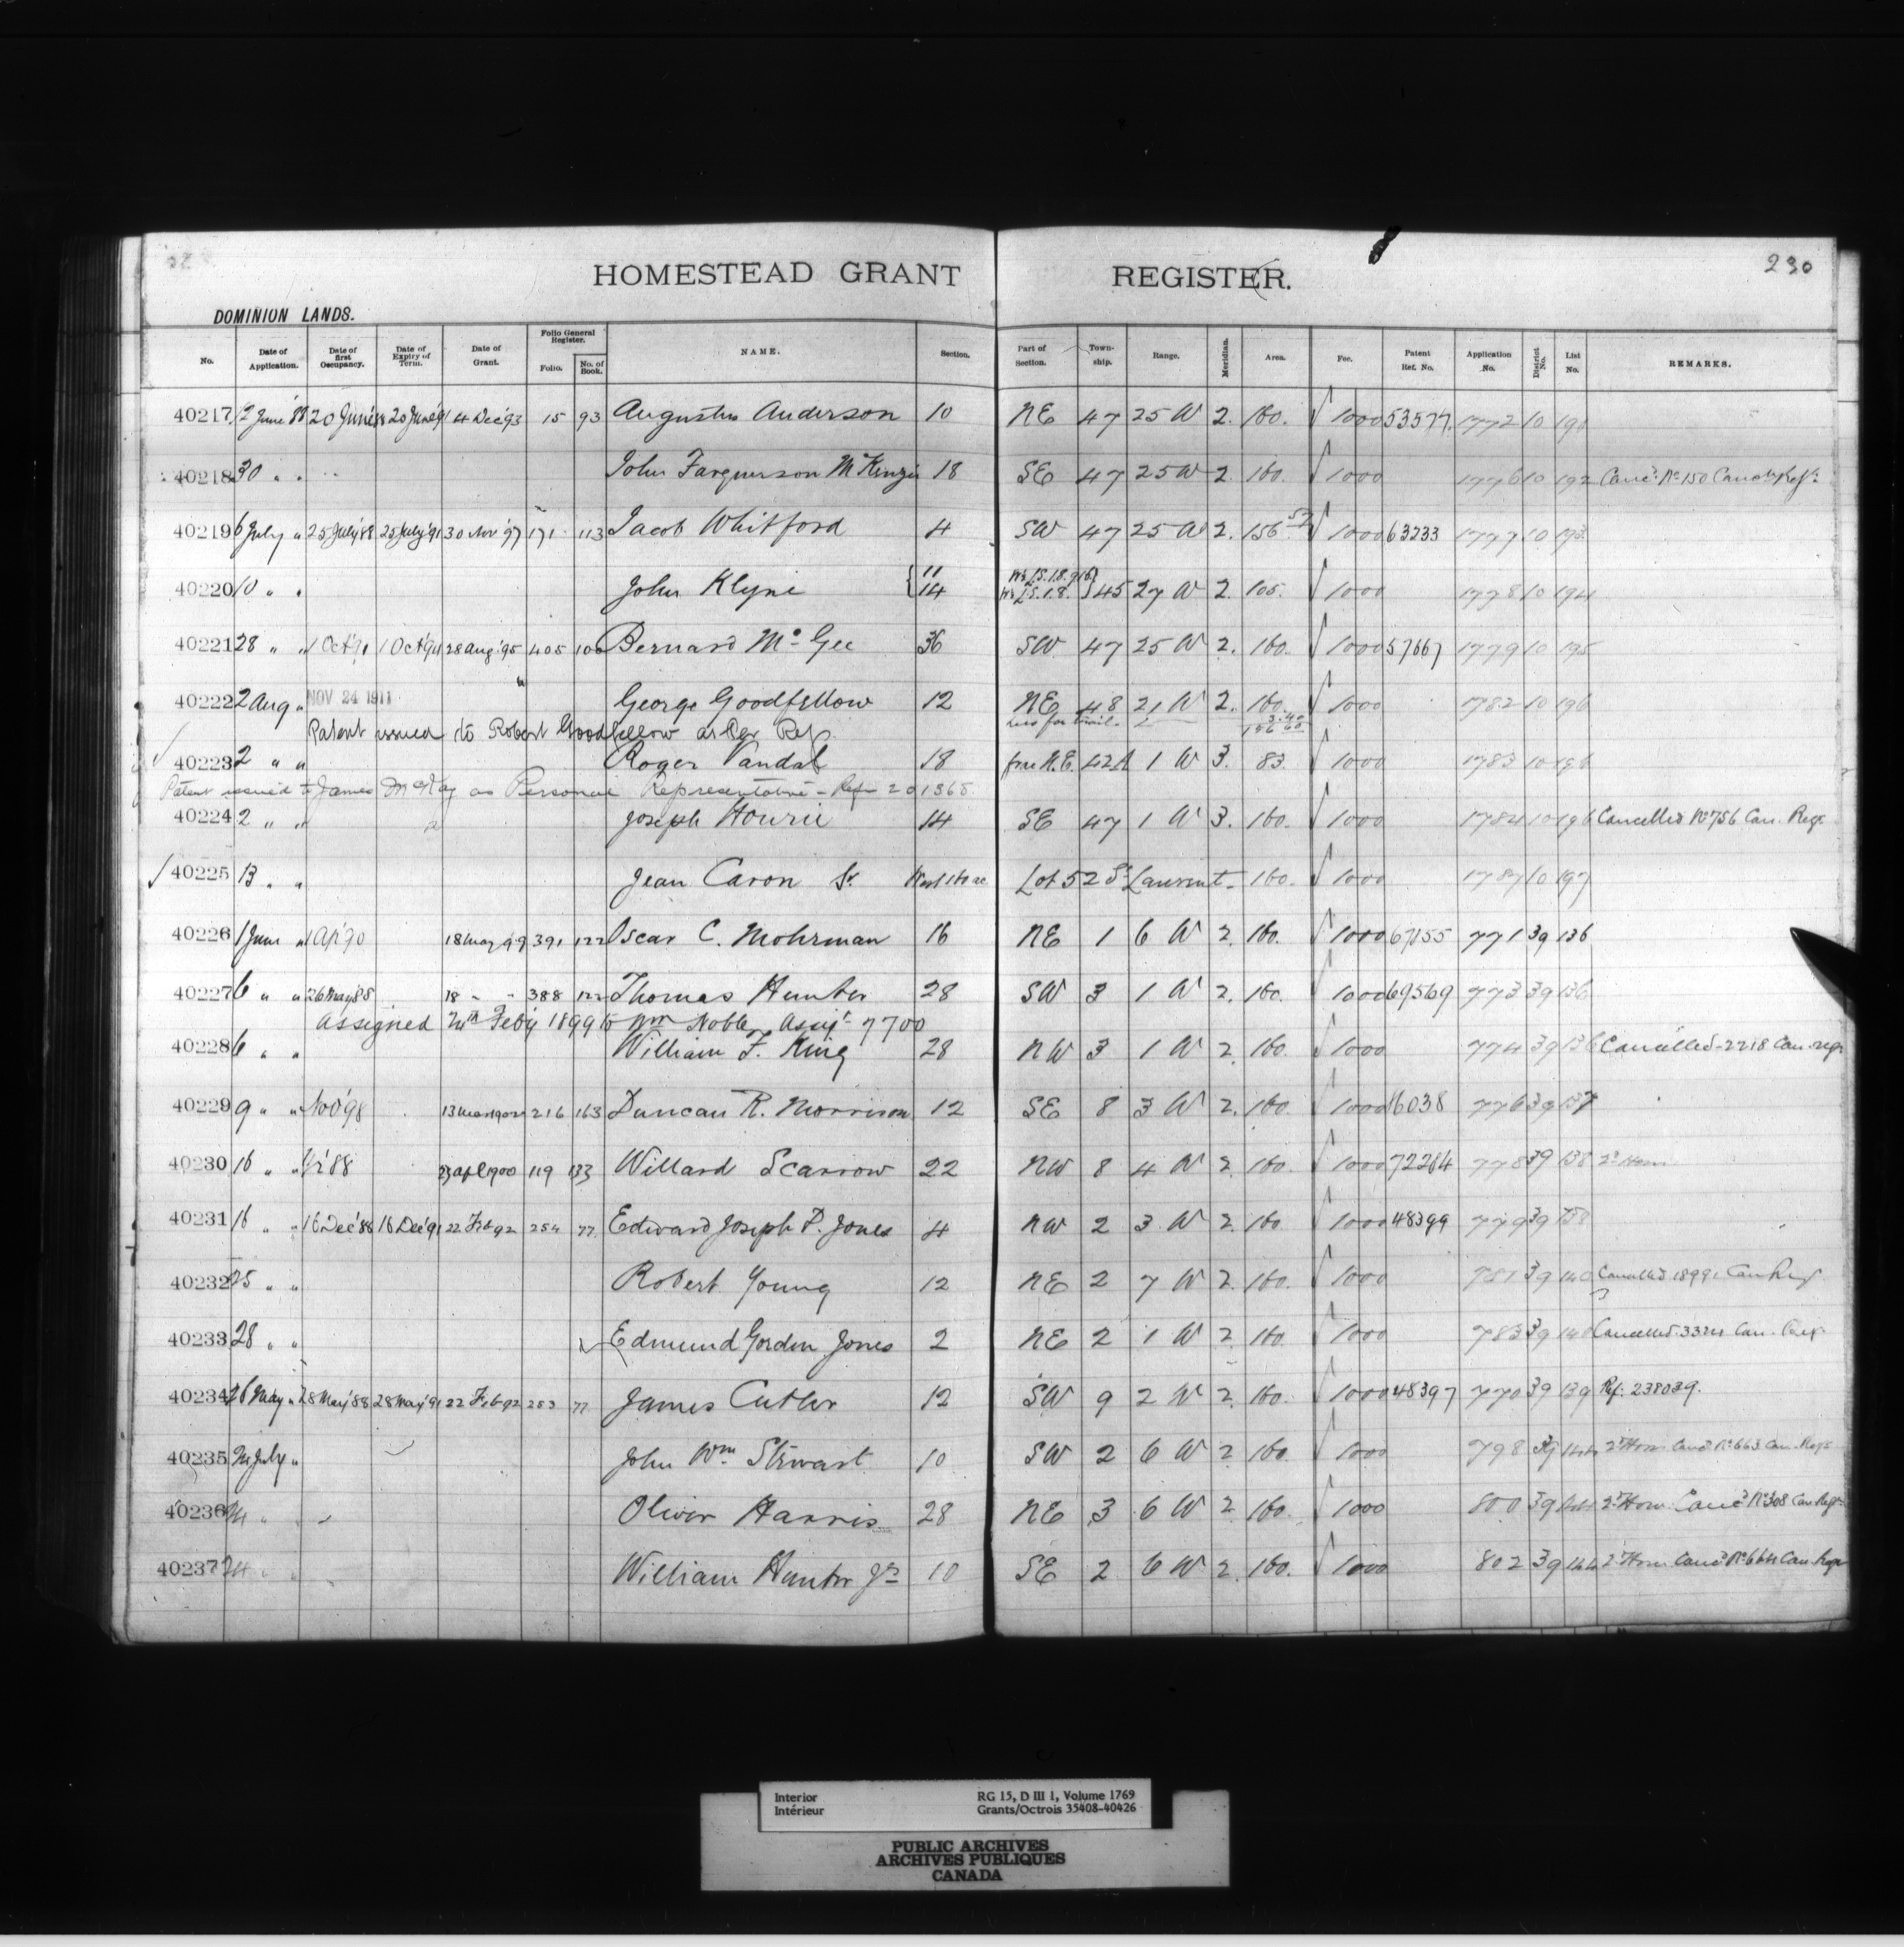 HOMESTEAD GRANT REGISTER.
230
DOMINION LANDS.
No. Date of Application. Date of first Occupancy. Date of Expiry of Term. Date of Grant. Folio General Register. Folio. No. of Book. NAME. Section. Part of Section. Township. Range. Meridian. Area. Fee. Patent Ref. No. Application No. District No. List No. REMARKS.
40217 12 June '88 20 June '88 20 June '91 4 Dec '93 15 93 Augustus Anderson 10 NE 47 25 W 2. 160. √ 1000 53577. 1772 10 190
40218 30 " " John Farquerson McKenzie 18 SE 47 25 W 2. 160. √ 1000 1776 10 192 Canc'd No 150 Canc'n Reg'r
40219 6 July " 25 July '88 25 July '91 30 Nov '97 171 113 Jacob Whitford 4 SW 47 25 W 2. 156 √ 1000 63233 1777 10 193
40220 10 " " John Klyne { 11 14 45 27 W 2. 105. √ 1000 1778 10 194
40221 28 " " 1 Oct '91 1 Oct '94 28 Aug '95 405 106 Bernard McGee 36 SW 47 25 W 2. 160. √ 1000 57667 1779 10 195
40222 2 Aug " NOV 24 1911 George Goodfellow 12 NE 48 21 W 2. 160. √ 1000 1782 10 196
less for trail. 3.40 156.60
Patent issued to Robert Goodfellow as per Ref.
40223 2 " " Roger Vandal 18 frac N.E. 42A 1 W 3. 83. √ 1000 1783 10 196
Patent issued to James McKay as Personal Representative - Ref 201365
40224 2 " " Joseph Hourie 14 SE 47 1 W 3. 160. √ 1000 1784 10 196 Cancelled No 756 Can. Reg.
√ 40225 13 " " Jean Caron Sr. West 160 ac Lot 52 St Laurent 160. √ 1000 1787 10 197
40226 1 June " 1 Ap '90 18 May 99 391 122 Oscar C. Mohrman 16 NE 1 6 W 2. 160. √ 1000 67155 771 39 136
40227 6 " " 26 May 88 18 " " 388 122 Thomas Hunter 28 SW 3 1 W 2. 160. 1000 69569 773 39 136
Assigned Feby 1899 to Wm Noble, Assigt 7700
40228 6 " " William F. King 28 NW 3 1 W 2. 160. √ 1000 774 39 136 Cancelled - 2218 Can. regr
40229 9 " " Nov '98 13 Mar 1902 216 163 Duncan R. Morrison 12 SE 8 3 W 2. 160 √ 1000 16038 776 39 137
40230 16 " " '88 23 Apl 1900 119 133 Willard Scarrow 22 NW 8 4 W 2 160. √ 1000 72284 778 39 138 2d Hom
40231 16 " " 16 Dec '88 16 Dec '91 22 Feb 92 254 77 Edward Joseph P. Jones 4 NW 2 3 W 2. 160 √ 1000 48399 779 39 138
40232 25 " " Robert Young 12 NE 2 7 W 2. 160. √ 1000 781 39 140 Cancelled 18991 Can Reg
40233 28 " " √ Edmund Gordon Jones 2 NE 2 1 W 2 160. √ 1000 783 39 140 Cancelled 3324 Can. Reg.
40234 26 May " 28 May '88 28 May '91 22 Feb 92 253 77 James Cutler 12 SW 9 2 W 2. 160. √ 1000 48397 770 39 139 Ref. 238039.
40235 24 July " John Wm. Stewart 10 SW 2 6 W 2 160. √ 1000 798 39 144 2d Hom Canc'd No 663 Can. Regr
40236 24 " " Oliver Harris 28 NE 3 6 W 2 160. √ 1000 800 39 144 2d Hom Canc'd No 308 Can. Regr
40237 24 " " William Hunter Jr 10 SE 2 6 W 2. 160. √ 1000 802 39 144 2d Hom Canc'd No 664 Can. Regr
Interior RG 15, D III 1, Volume 1769
Intérieur Grants/Octrois 35408-40426
PUBLIC ARCHIVES
ARCHIVES PUBLIQUES
CANADA